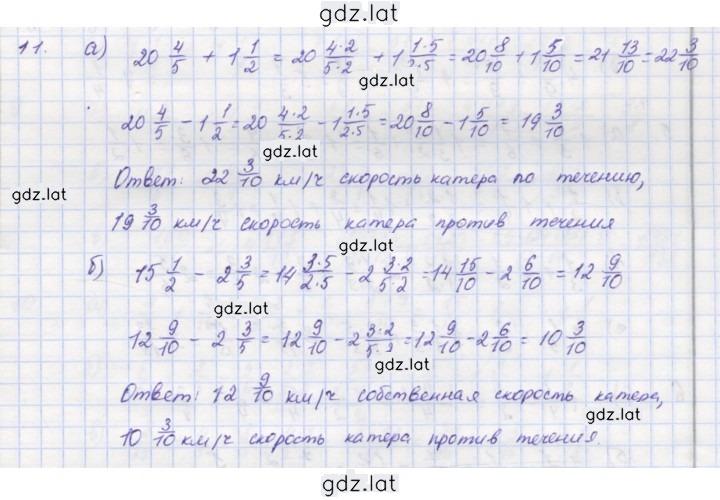 gdz.lat
11. а) 20 4/5 + 1 1/2 = 20 4·2/5·2 + 1 1·5/2·5 = 20 8/10 + 1 5/10 = 21 13/10 = 22 3/10
gdz.lat
20 4/5 - 1 1/2 = 20 4·2/5·2 - 1 1·5/2·5 = 20 8/10 - 1 5/10 = 19 3/10
gdz.lat
Ответ: 22 3/10 км/ч скорость катера по течению,
gdz.lat
19 3/10 км/ч скорость катера против течения
gdz.lat
б) 15 1/2 - 2 3/5 = 14 3·5/2·5 - 2 3·2/5·2 = 14 15/10 - 2 6/10 = 12 9/10
gdz.lat
12 9/10 - 2 3/5 = 12 9/10 - 2 3·2/5·2 = 12 9/10 - 2 6/10 = 10 3/10
gdz.lat
Ответ: 12 9/10 км/ч собственная скорость катера,
gdz.lat
10 3/10 км/ч скорость катера против течения.
gdz.lat